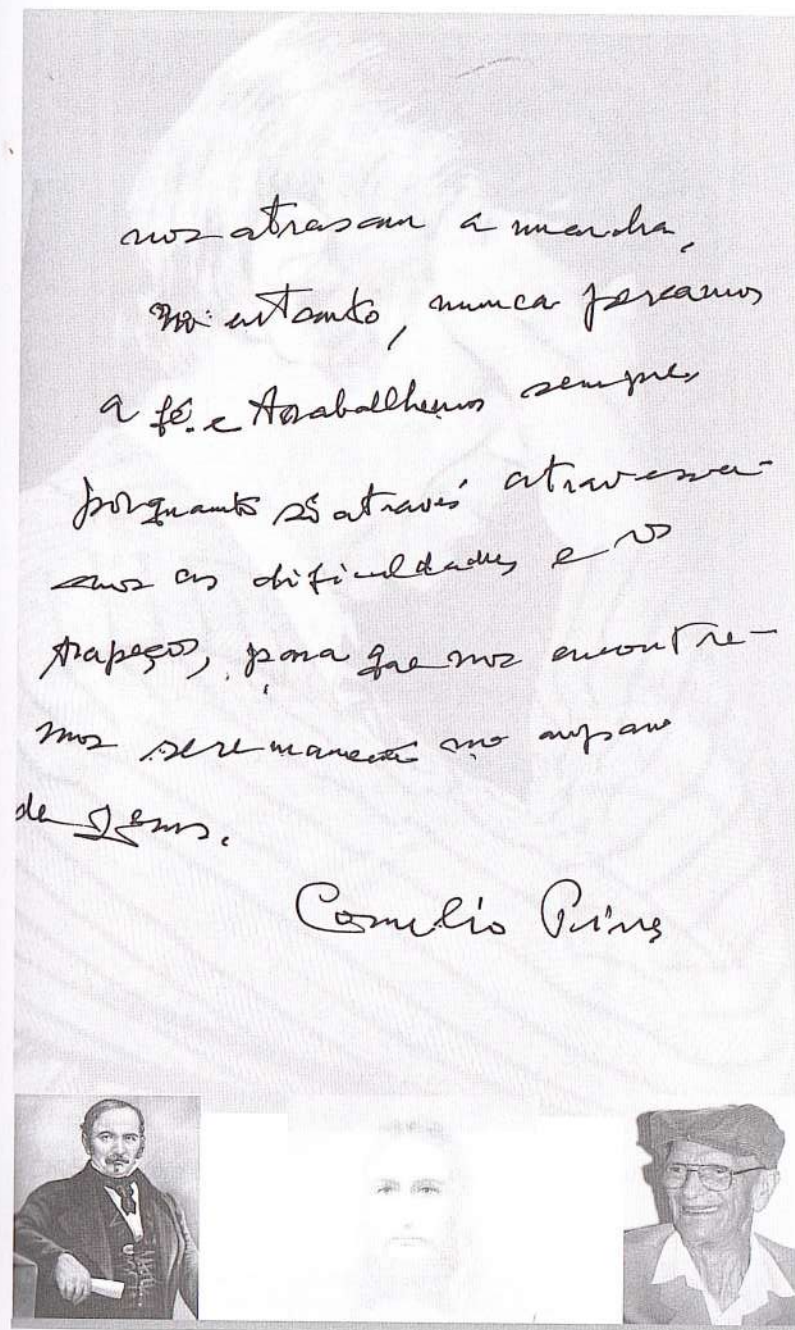 nos atrasam a marcha,
no entanto, nunca percamos
a fé. e trabalhemos sempre,
porquanto só através atravessa-
mos as dificuldades e os
trapeços, para que nos encontre-
mos serenamente no amparo
de Jesus.
Cornelio Pires